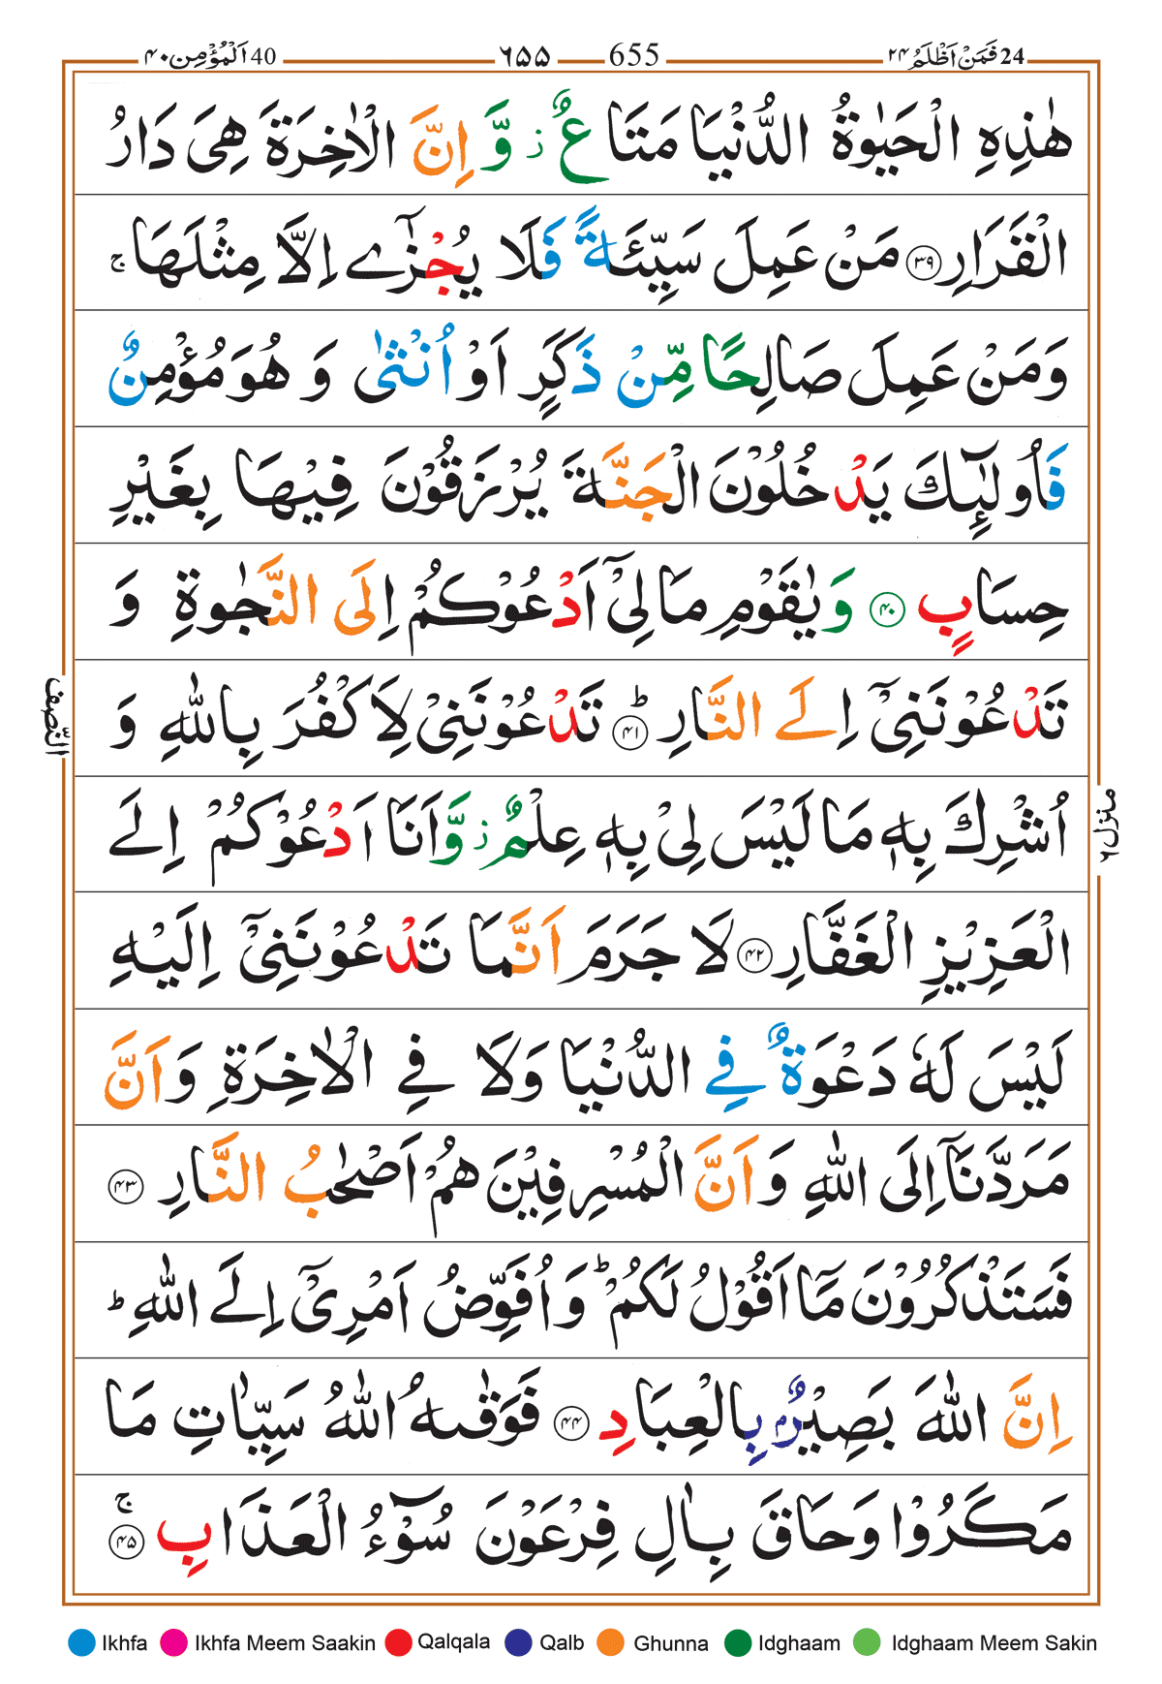 24 فَمَنْ اَظْلَمُ ۲۴ 655 ۶۵۵ 40 اَلْمُؤْمِن ۴۰
هٰذِهِ الْحَيٰوةُ الدُّنْيَا مَتَاعٌ ز وَّ اِنَّ الْاٰخِرَةَ هِىَ دَارُ
الْقَرَارِ ۳۹ مَنْ عَمِلَ سَيِّئَةً فَلَا يُجْزٰٓے اِلَّا مِثْلَهَا ج
وَمَنْ عَمِلَ صَالِحًا مِّنْ ذَكَرٍ اَوْ اُنْثٰى وَ هُوَ مُؤْمِنٌ
فَاُولٰٓئِكَ يَدْخُلُوْنَ الْجَنَّةَ يُرْزَقُوْنَ فِيْهَا بِغَيْرِ
حِسَابٍ ۴۰ وَيٰقَوْمِ مَا لِىْٓ اَدْعُوْكُمْ اِلَى النَّجٰوةِ وَ
تَدْعُوْنَنِىْٓ اِلَے النَّارِ ط ۴۱ تَدْعُوْنَنِىْ لِاَكْفُرَ بِاللّٰهِ وَ
اُشْرِكَ بِهٖ مَا لَيْسَ لِىْ بِهٖ عِلْمٌ ز وَّاَنَا اَدْعُوْكُمْ اِلَے
الْعَزِيْزِ الْغَفَّارِ ۴۲ لَا جَرَمَ اَنَّمَا تَدْعُوْنَنِىْٓ اِلَيْهِ
لَيْسَ لَهٗ دَعْوَةٌ فِے الدُّنْيَا وَلَا فِے الْاٰخِرَةِ وَاَنَّ
مَرَدَّنَآ اِلَى اللّٰهِ وَاَنَّ الْمُسْرِفِيْنَ هُمْ اَصْحٰبُ النَّارِ ۴۳
فَسَتَذْكُرُوْنَ مَآ اَقُوْلُ لَكُمْ ط وَاُفَوِّضُ اَمْرِىْٓ اِلَے اللّٰهِ ط
اِنَّ اللّٰهَ بَصِيْرٌۢ بِالْعِبَادِ ۴۴ فَوَقٰىهُ اللّٰهُ سَيِّاٰتِ مَا
مَكَرُوْا وَحَاقَ بِاٰلِ فِرْعَوْنَ سُوْٓءُ الْعَذَابِ ج ۴۵
النّصف
منزل ۶
Ikhfa Ikhfa Meem Saakin Qalqala Qalb Ghunna Idghaam Idghaam Meem Sakin